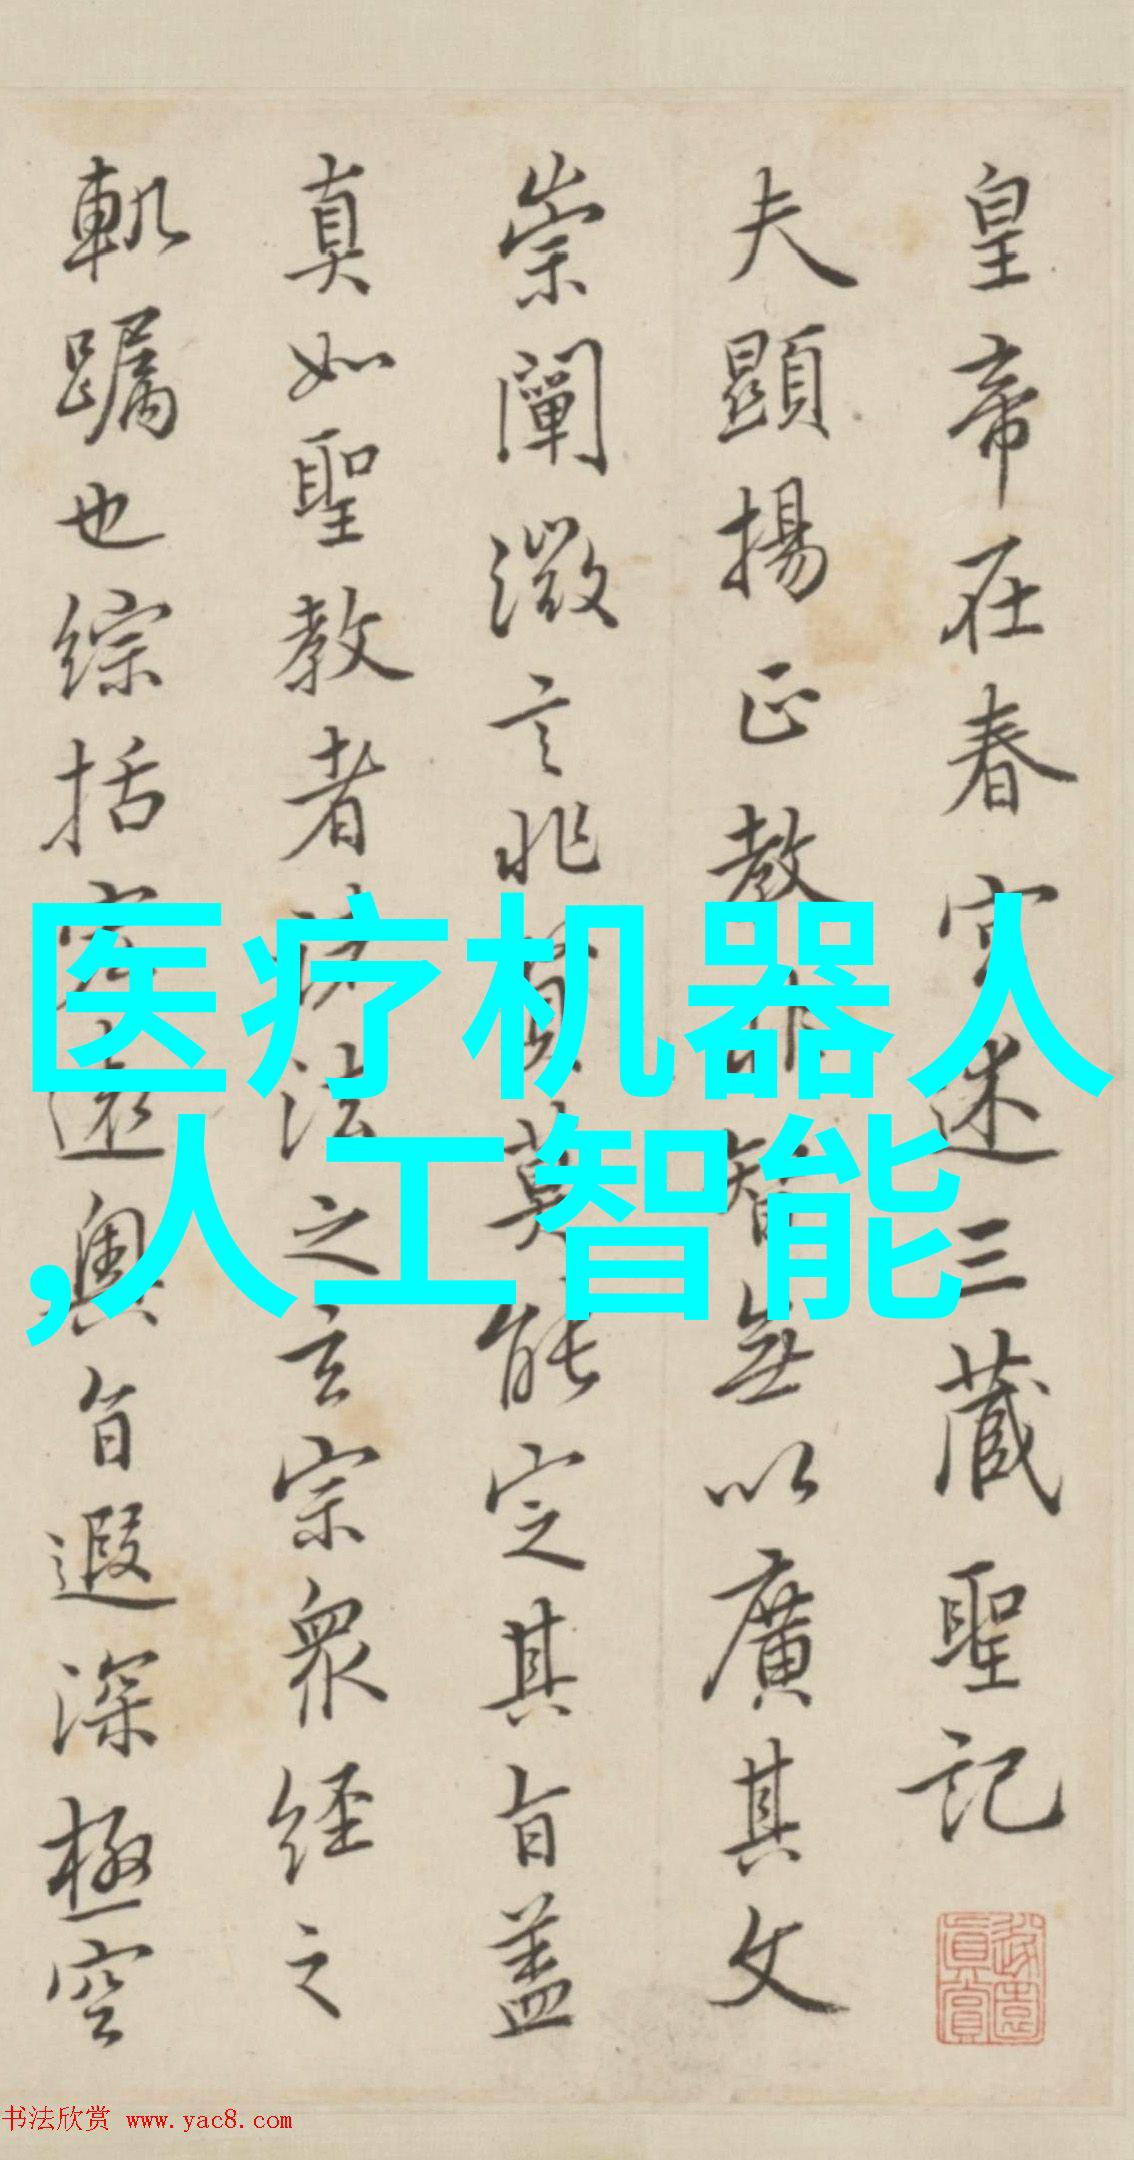 皇帝在春宫述三藏聖記
夫顯揚正教非智無以廣其文
崇闡微言非賢莫能定其旨蓋
真如聖教者諸法之玄宗衆經之
軌躅也綜括宏遠奧旨遐深極空
医疗机器人
,人工智能
真賞
书法欣赏 www.yac8.com